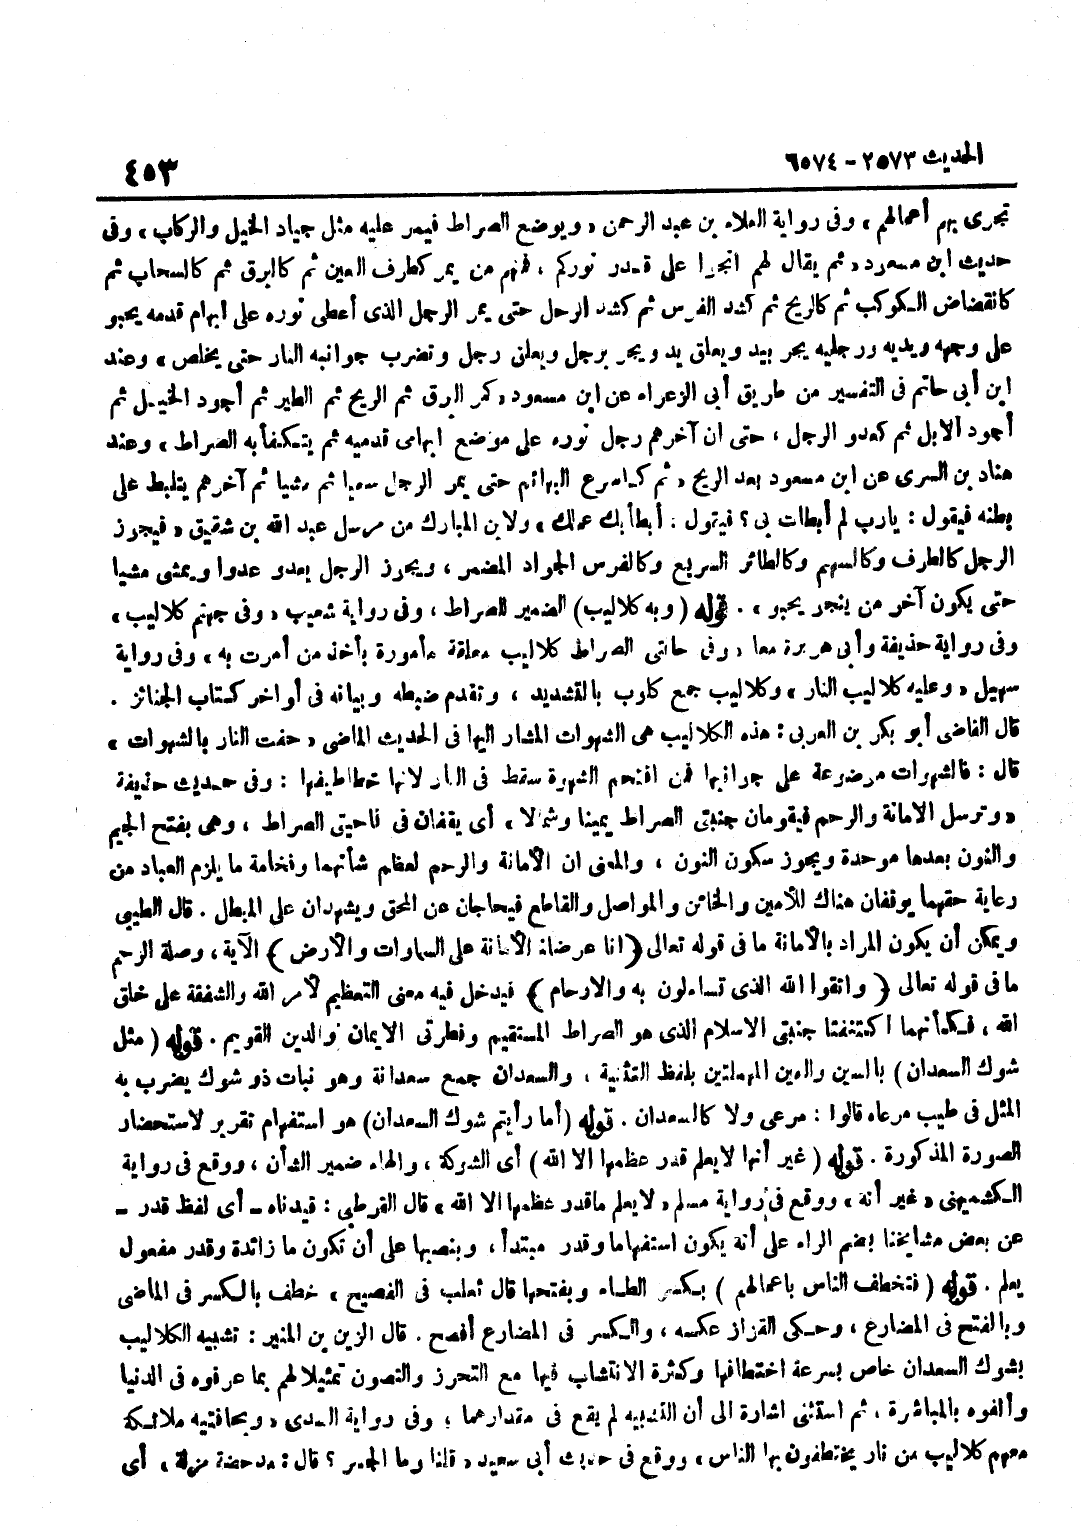 الحديث ٢٥٧٣ - ٦٥٧٤
٤٥٣
تجرى بهم أعمالهم ، وفى رواية العلاء بن عبد الرحمن « ويوضع الصراط فيمر عليه مثل جياد الخيل والركاب ، وفى
حديث ابن مسعود « ثم يقال لهم انجوا على قدر نوركم ، فمنهم من يمر كطرف العين ثم كالبرق ثم كالسحاب ثم
كانقضاض الكوكب ثم كالريح ثم كشد الفرس ثم كشد الرحل حتى يمر الرجل الذى أعطى نوره على ابهام قدمه يحبو
على وجهه ويديه ورجليه يجر بيد ويعلق يد ويجر برجل ويعلق رجل وتضرب جوانبه النار حتى يخلص » وعند
ابن أبى حاتم فى التفسير من طريق أبى الزعراء عن ابن مسعود « كمر البرق ثم الريح ثم الطير ثم أجود الخيل ثم
أجود الابل ثم كعدو الرجل ، حتى ان آخرهم رجل نوره على موضع ابهامى قدميه ثم يتكفأ به الصراط » وعند
هناد بن السرى عن ابن مسعود بعد الريح « ثم كأسرع البهائم حتى يمر الرجل سعيا ثم مشيا ثم آخرهم يتلبط على
بطنه فيقول : يارب لم أبطأت بى ؟ فيقول : أبطأ بك عملك » ولابن المبارك من مرسل عبد الله بن شقيق « فيجوز
الرجل كالطرف وكالسهم وكالطائر السريع وكالفرس الجواد المضمر ، ويجوز الرجل يعدو عدوا ويمشى مشيا
حتى يكون آخر من ينجو يحبو » . قوله ( وبه كلاليب ) الضمير للصراط ، وفى رواية شعيب « وفى جهنم كلاليب »
وفى رواية حذيفة وأبى هريرة معا « وفى حافتى الصراط كلاليب معلقة مأمورة بأخذ من أمرت به » وفى رواية
سهيل « وعليه كلاليب النار » وكلاليب جمع كلوب بالتشديد ، وتقدم ضبطه وبيانه فى أواخر كتاب الجنائز .
قال القاضى أبو بكر بن العربى : هذه الكلاليب هى الشهوات المشار اليها فى الحديث الماضى « حفت النار بالشهوات »
قال : فالشهوات موضوعة على جوانبها فمن اقتحم الشهوة سقط فى النار لانها خطاطيفها : وفى حديث حذيفة
« وترسل الامانة والرحم فيقومان جنبتى الصراط يمينا وشمالا » أى يقفان فى ناحيتى الصراط ، وهى بفتح الجيم
والنون بعدها موحدة ويجوز سكون النون ، والمعنى ان الأمانة والرحم لعظم شأنهما وفخامة ما يلزم العباد من
رعاية حقهما يوقفان هناك للأمين والخائن والمواصل والقاطع فيحاجان عن المحق ويشهدان على المبطل . قال الطيبى
ويمكن أن يكون المراد بالأمانة ما فى قوله تعالى ﴿ انا عرضنا الأمانة على السماوات والأرض ﴾ الآية ، وصلة الرحم
ما فى قوله تعالى ﴿ واتقوا الله الذى تساءلون به والارحام ﴾ فيدخل فيه معنى التعظيم لأمر الله والشفقة على خلق
الله ، فكأنهما اكتنفتا جنبتى الاسلام الذى هو الصراط المستقيم وفطرتى الايمان والدين القويم . قوله ( مثل
شوك السعدان ) بالسين والعين المهملتين بلفظ التثنية ، والسعدان جمع سعدانة وهو نبات ذو شوك يضرب به
المثل فى طيب مرعاه قالوا : مرعى ولا كالسعدان . قوله ( أما رأيتم شوك السعدان ) هو استفهام تقرير لاستحضار
الصورة المذكورة . قوله ( غير أنها لا يعلم قدر عظمها الا الله ) أى الشوكة ، والهاء ضمير الشأن ، ووقع فى رواية
الكشميهنى « غير أنه » ووقع فى رواية مسلم « لا يعلم ماقدر عظمها الا الله » قال القرطبى : قيدناه - أى لفظ قدر -
عن بعض مشايخنا بضم الراء على أنه يكون استفهاما وقدر مبتدأ ، وبنصبها على أن تكون ما زائدة وقدر مفعول
يعلم . قوله ( فتخطف الناس باعمالهم ) بكسر الطاء وبفتحها قال ثعلب فى الفصيح » خطف بالكسر فى الماضى
وبالفتح فى المضارع ، وحكى القزاز عكسه ، والكسر فى المضارع أفصح . قال الزين بن المنير : تشبيه الكلاليب
بشوك السعدان خاص بسرعة اختطافها وكثرة الانتشاب فيها مع التحرز والتصون تمثيلا لهم بما عرفوه فى الدنيا
وألفوه بالمباشرة ، ثم استثنى اشارة الى أن التشبيه لم يقع فى مقدارهما ؛ وفى رواية السدى « وبحافتيه ملائكة
معهم كلاليب من نار يختطفون بها الناس » ووقع فى حديث أبى سعيد « قلنا وما الجسر ؟ قال : مدحضة مزلة » أى